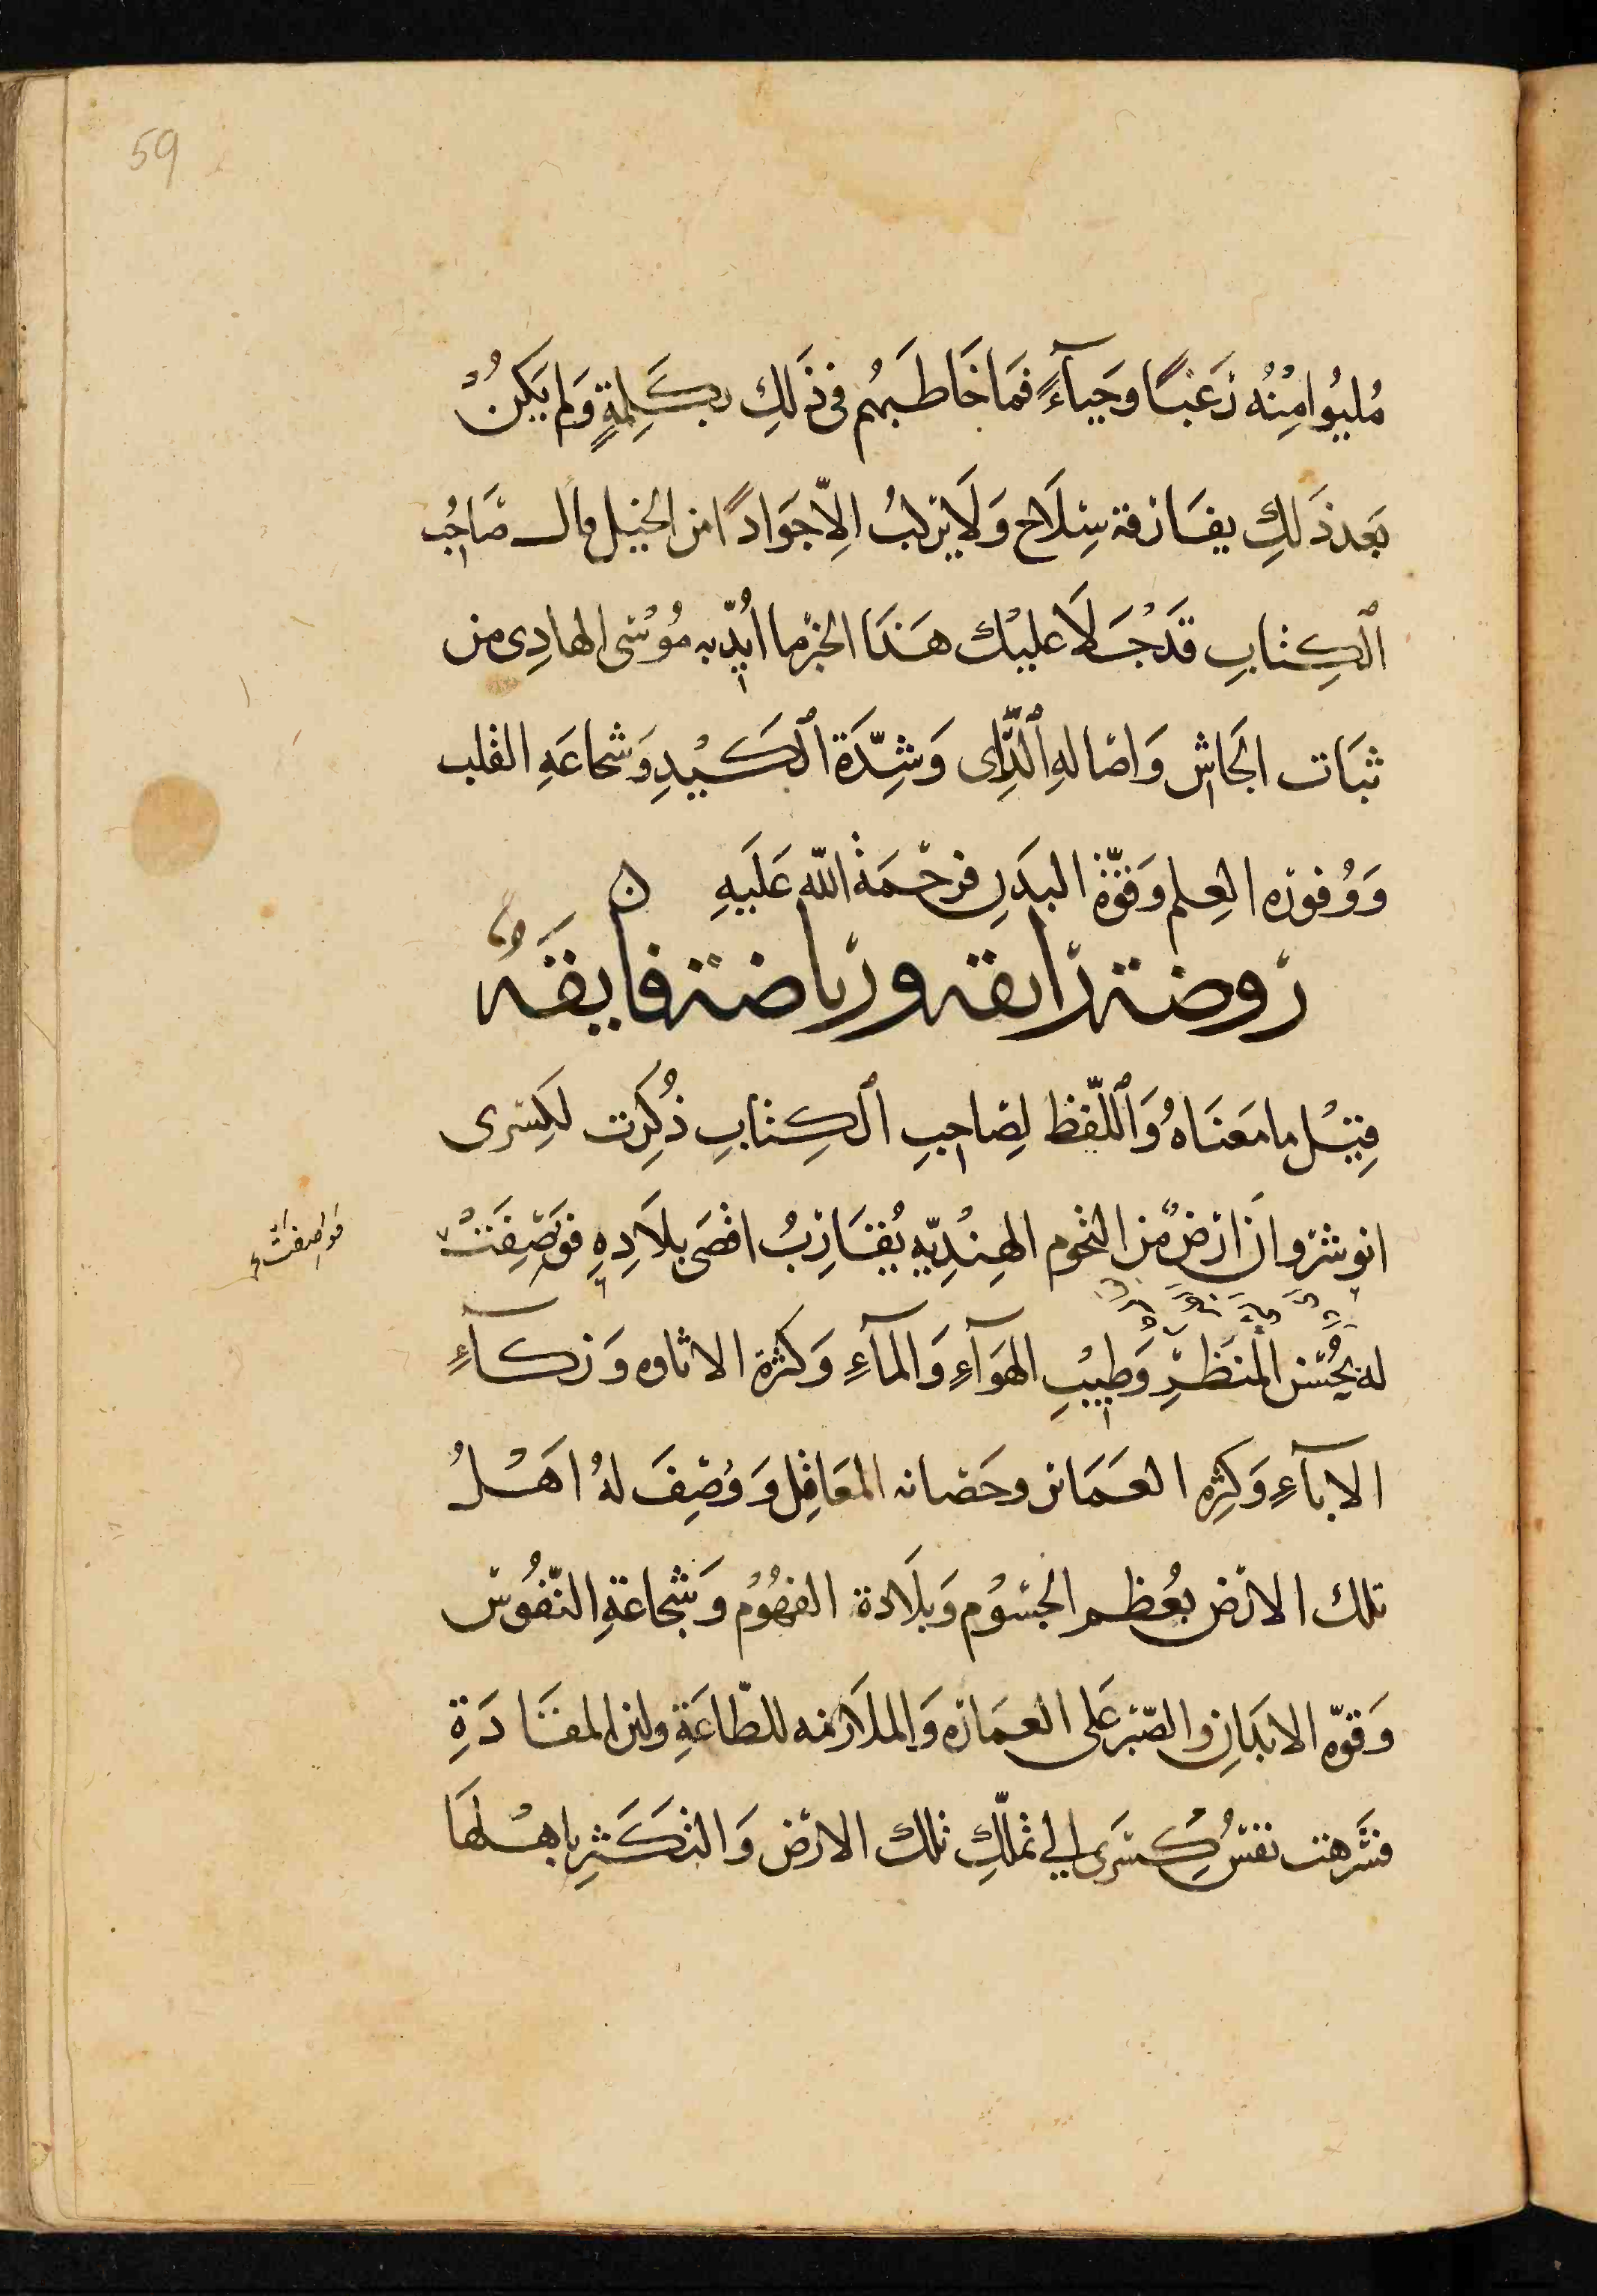 59
مُلِيُوا مِنْهُ رُعْبًا وَحَيَآءً فَمَا خَاطَبَهُم فى ذَلِكَ بِكَلِمَةٍ وَلَم يَكُنْ
بَعد ذَلِكِ يفَارقه سِلَاح وَلَا يَركبُ اِلّا جَوَادًا من الخيل قال صَاحِبُ
الكِتَابِ قَدْ جَلَا عليْك هَذَا الخبر ما اُيّدَ به مُوْسَى الهادِى من
ثبَات الجَاش وَاصَالهِ الرَّاى وَشِدَّة الكَيْدِ وَشجاعَهِ القلب
وَوُفوره العِلم وَقوّة البَدَنِ فرحْمَةُ الله عَلَيهِ ن
رَوضة رَائقة ورياضة فايقَه
قِيْل ما مَعنَاهُ وَاللّفظ لِصَاحِبِ الكِتَابِ ذُكِرَت لكِسرى
انوشروان اَرضٌ من التخوم الهنْدِيّه يُقَارِبُ اقصَى بلَادِهِ فوَصِفَتْ
فوصفت
له بحُسْن المنظَرِ وَطِيْبِ الهوَآءِ وَالمآءِ وَكثرة الاتاوه وَزكآءِ
الابآءِ وَكثره العَمَائر وحَصانه المعَاقِل وَوُصِفَ لهُ اَهْلُ
تلك الارض بعُظم الجسُوْم وَبلَادة الفهُوْم وَشجَاعَةِ النّفُوس
وَقوّه الابدَانِ والصّبْر عَلى العمَاره وَالملَازمه للطّاعَةِ ولين المقَادَةِ
فشَرهت نفسُ كِسْرَى الى تملّكِ تلك الارض وَالتكَثّرِ باهْلهَا